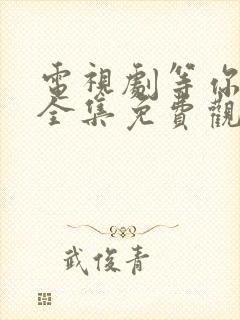 電視劇等你
全集免費觀
武俊青